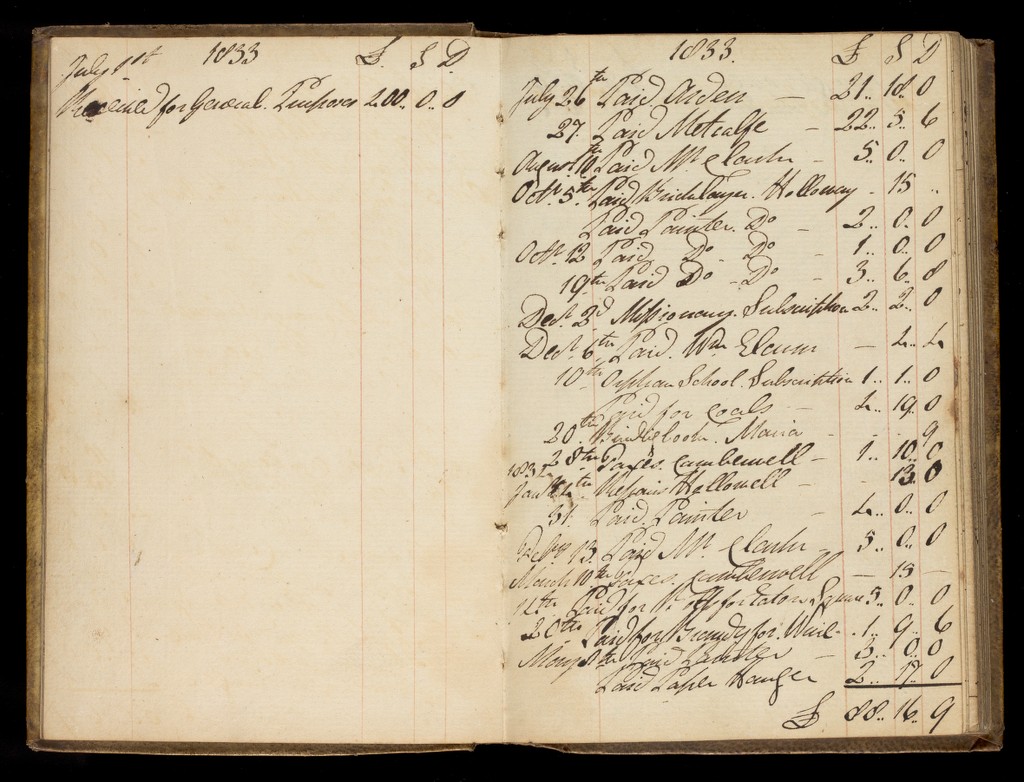 July 1st 1833 £. S D.
Received for General Purposes 200.. 0.. 0
1833. £ S D
July 26th Paid Arden — 21.. 10.. 0
27. Paid Metcalfe — 22.. 5.. 6
August 10th Paid Mr. Clark — 5.. 0.. 0
Octr. 5th. Paid Bricklayer. Holloway - 15 ..
Paid Painter. Do — 2.. 0.. 0
Octr. 12 Paid Do - Do 1.. 0.. 0
19th Paid Do - Do — 3.. 6.. 8
Decr. 2d Missionary. Subscription 2.. 2.. 0
Decr. 6th Paid. Wm — 4.. 4
10th Orphan School. Subscription 1.. 1.. 0
Paid for Coals — 4.. 19. 0
20th Maria — - .. 9
28th Taxes. Camberwell — 1.. 10. 0
1834
Jany Repairs — - 13. 0
31. Paid. Painter — 4.. 0.. 0
13. Paid Mr. Clark 5.. 0.. 0
March 10th Taxes. Camberwell — 15 —
14th Paid for for Eaton Square 5.. 0.. 0
20th Paid for Brandy for. 1.. 9.. 6
May Paid — 3.. 0.. 0
Paid Paper Hanger 2.. 17.. 0
£ 88.. 16.. 9